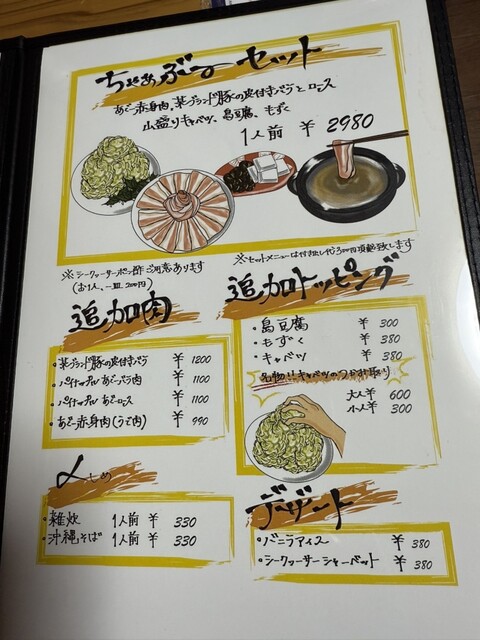 ちゃあぶーセット
あぐー赤身肉、某ブランド豚の皮付きバラとロース
山盛りキャベツ、島豆腐、もずく
1人前 ￥2980
※シークァーサーポン酢ご用意あります
(お1人、一皿、200円)
※セットメニューは付き出し代300円頂戴致します
追加肉
・某ブランド豚の皮付きバラ ￥1200
・パイナップル あぐーバラ肉 ￥1100
・パイナップル あぐーロース ￥1100
・あぐー赤身肉(うで肉) ￥990
追加トッピング
・島豆腐 ￥300
・もずく ￥380
・キャベツ ￥380
名物!!キャベツのつかみ取り
大人 ￥600
小人 ￥300
〆しめ
・雑炊 1人前 ￥330
・沖縄そば 1人前 ￥330
デザート
・バニラアイス ￥380
・シークァーサーシャーベット ￥380